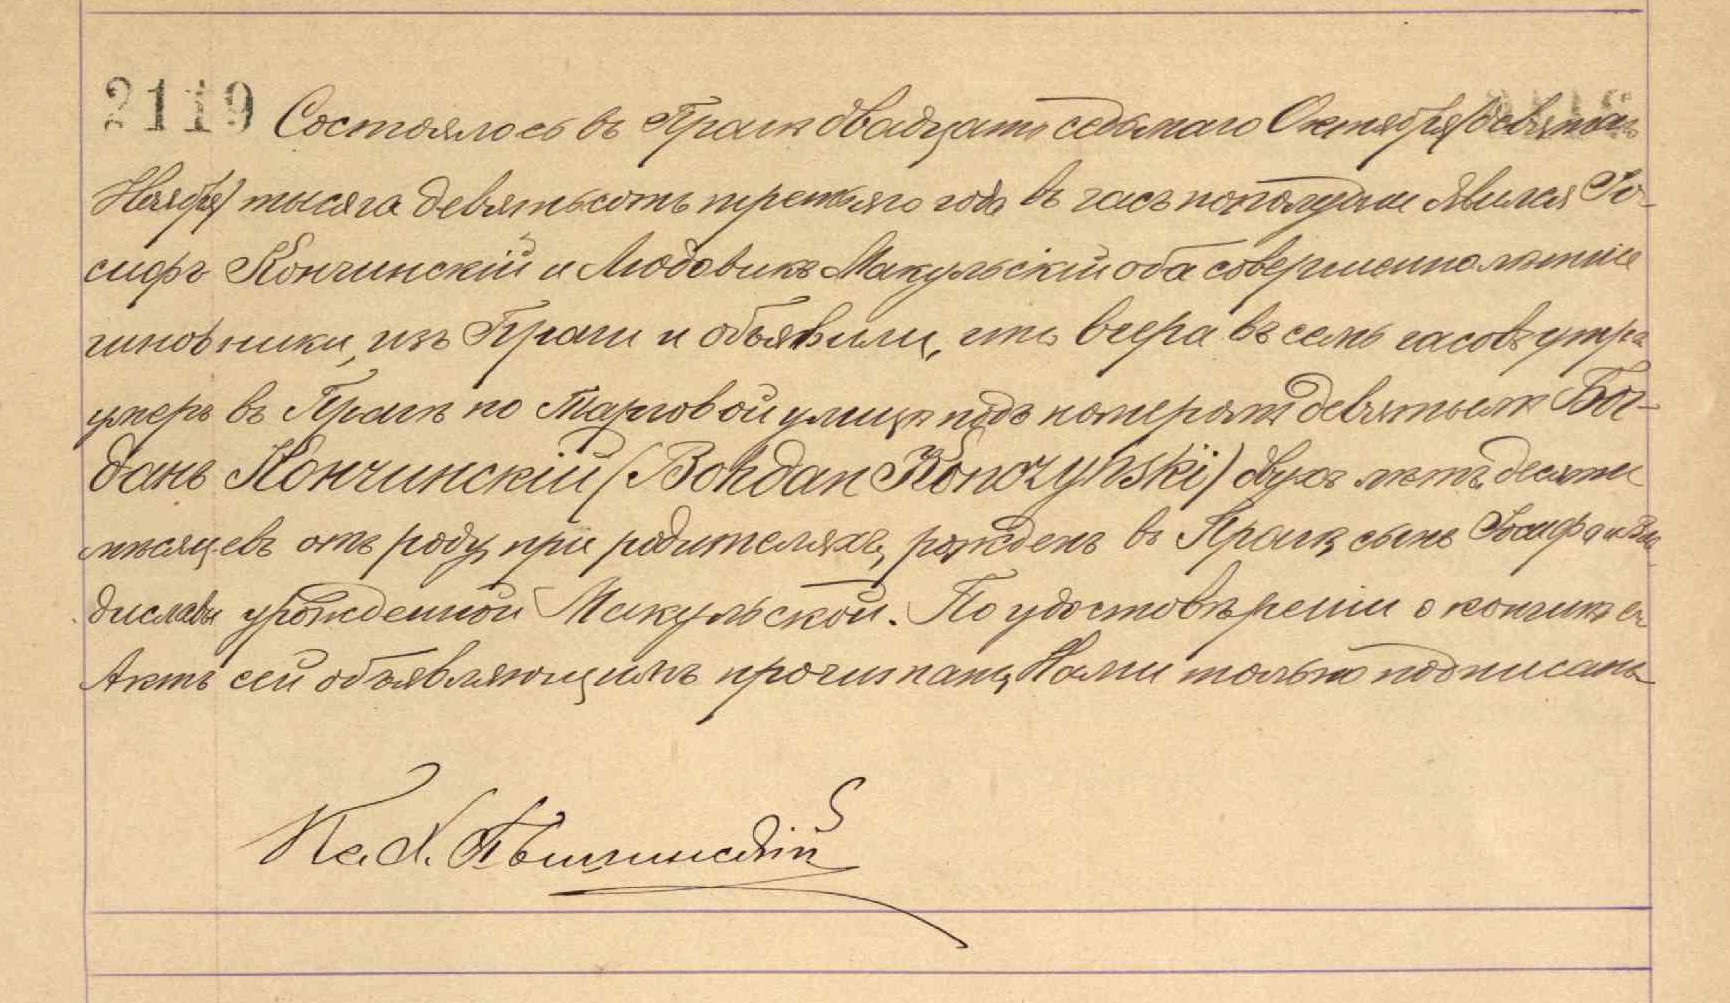 2119 Состоялось въ Прагѣ двадцать седьмаго Октября /девятаго
Ноября/ тысяча девятьсотъ третьяго года въ часъ пополудни явился Іо-
сифъ Кончинскій и Людовикъ Макульскій оба совершеннолѣтніе
чиновники, изъ Праги и объявили, что вчера въ семь часовъ утра
умеръ въ Прагѣ по Тарговой улицѣ подъ номеромъ девятымъ Бог-
данъ Кончинскій /Bohdan Kończyński/ двухъ лѣтъ, десяти
мѣсяцевъ отъ роду, при родителяхъ, рожденъ въ Прагѣ, сынъ Іосифа и Вла-
диславы урожденной Макульской. По удостовѣреніи о кончинѣ его
Актъ сей объявляющимъ прочитанъ, Нами только подписанъ